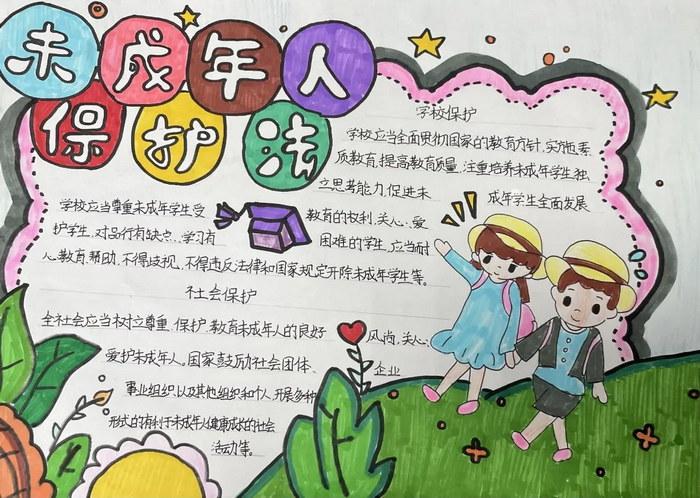 未成年人
保护法
学校保护
学校应当全面贯彻国家的教育方针,实施素
质教育,提高教育质量,注重培养未成年学生独
立思考能力,促进未成年学生全面发展
学校应当尊重未成年学生受教育的权利,关心、爱
护学生,对品行有缺点、学习有困难的学生,应当耐
心教育、帮助,不得歧视,不得违反法律和国家规定开除未成年学生等。
社会保护
全社会应当树立尊重、保护、教育未成年人的良好风尚,关心、
爱护未成年人。国家鼓励社会团体、企业
事业组织以及其他组织和个人,开展多种
形式的有利于未成年人健康成长的社会
活动等。